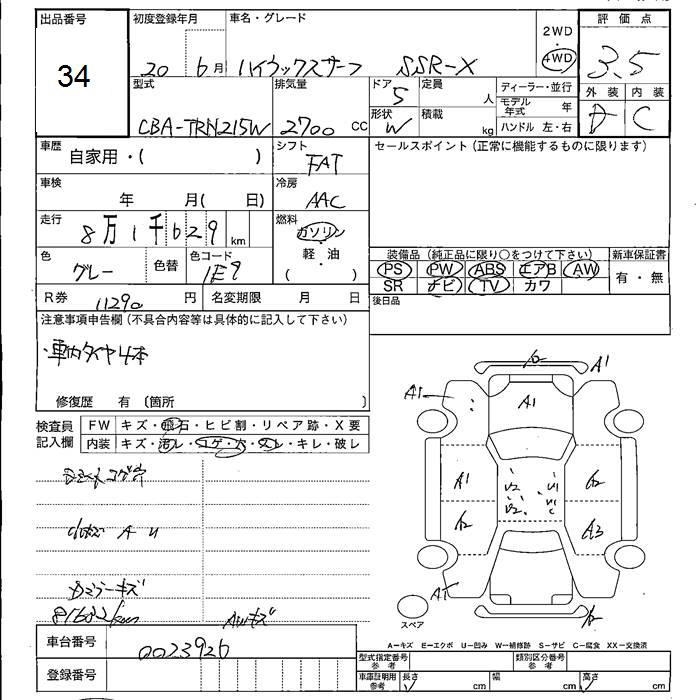 出品番号 初度登録年月 車名・グレード 2WD 評価点
34 20 6月 ハイラックスサーフ SSR-X 4WD 3.5
型式 排気量 ドア 定員 ディーラー・並行 外装 内装
5 人 モデル年式 年
CBA-TRN215W 2700 CC 形状 W 積載 kg ハンドル 左・右 D C
車歴 自家用・( ) シフト FAT セールスポイント(正常に機能するものに限ります)
車検 年 月( 日) 冷房 AAC
走行 8万1千629 km 燃料 ガソリン・軽・油 ( )
色 グレー 色替 色コード 1E9
装備品(純正品に限り○をつけて下さい) 新車保証書
PS PW ABS エアB AW 有・無
SR ナビ TV カワ
R券 11290 円 名変期限 月 日 後日品
注意事項申告欄(不具合内容等は具体的に記入して下さい)
・車内タイヤ4本
修復歴 有 〔箇所 〕
検査員記入欄 FW キズ・飛石・ヒビ割・リペア跡・X要
内装 キズ・汚レ・コゲ・穴・スレ・キレ・破レ
A1
A1
A1
A1
U2 U1
U2 U1
C
A3
A U
ドアミラーキズ
AWキズ
スペア
A−キズ E−エクボ U−凹み W−補修跡 S−サビ C−腐食 XX−交換済
車台番号 0023926
型式指定番号 参考 類別区分番号 参考
登録番号 車庫証明用 参考 長さ cm 幅 cm 高さ cm